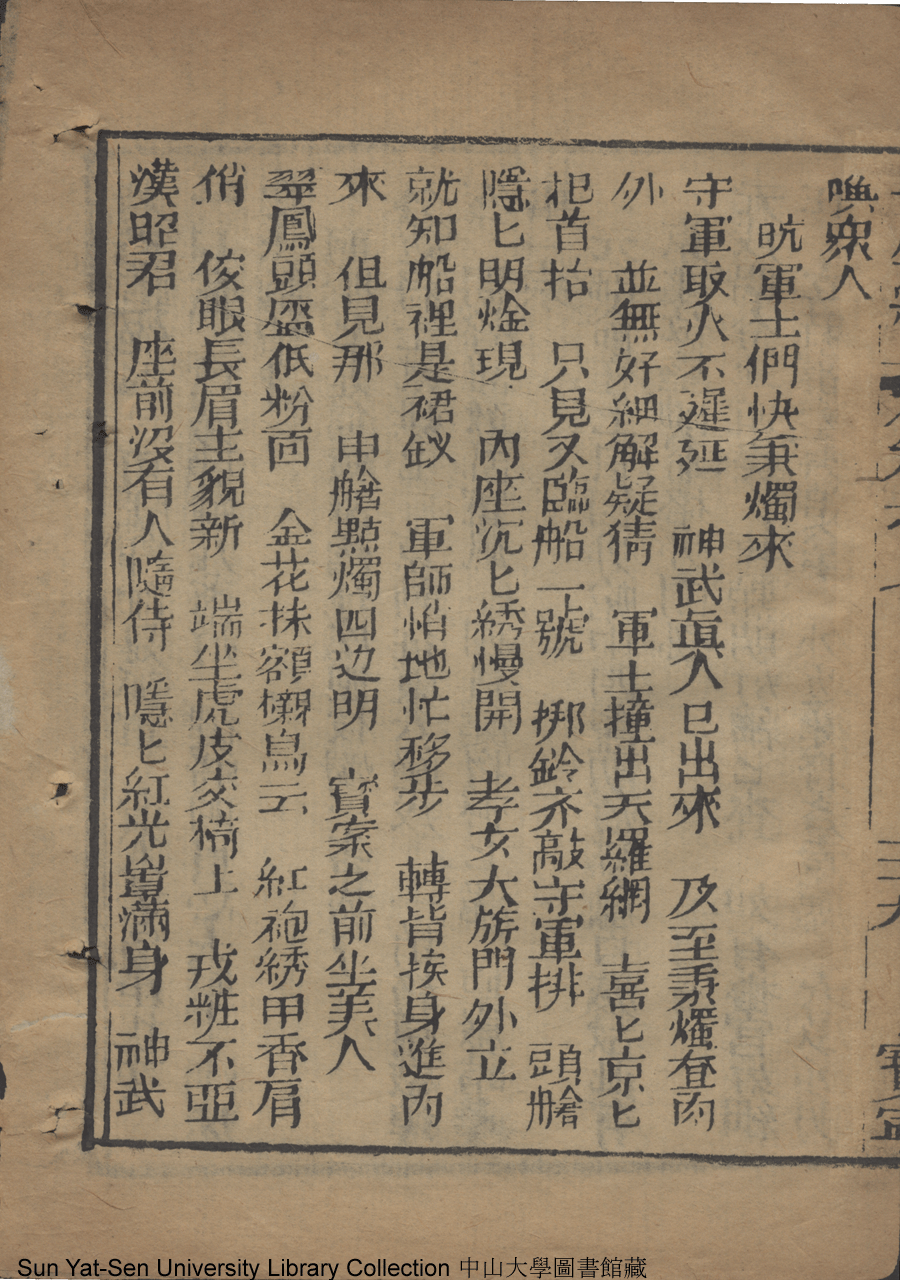 喚衆人
晄軍士們快秉燭來
守軍取火不遲延　神武眞人已出來　及至秉燭查內
外　並無奸細解疑猜　軍士撞出天羅網　喜匕京匕
把首抬　只見又臨船一號　梆鈴齐敲守軍排　頭艙
隱匕明燈現　內座沉匕綉慢開　孝女大旂門外立
就知船裡是裙釵　軍師悄地忙移步　轉背挨身進內
來　但見那　中艙點燭四边明　寶案之前坐美人
翠鳳頭盔低粉面　金花抹額襯烏云　紅袍綉甲香肩
俏　俊眼長眉主貌新　端坐虎皮交椅上　戎粧不亞
漢昭君　座前沒有人隨侍　隱匕紅光罩滿身　神武
Sun Yat-Sen University Library Collection 中山大學圖書館藏